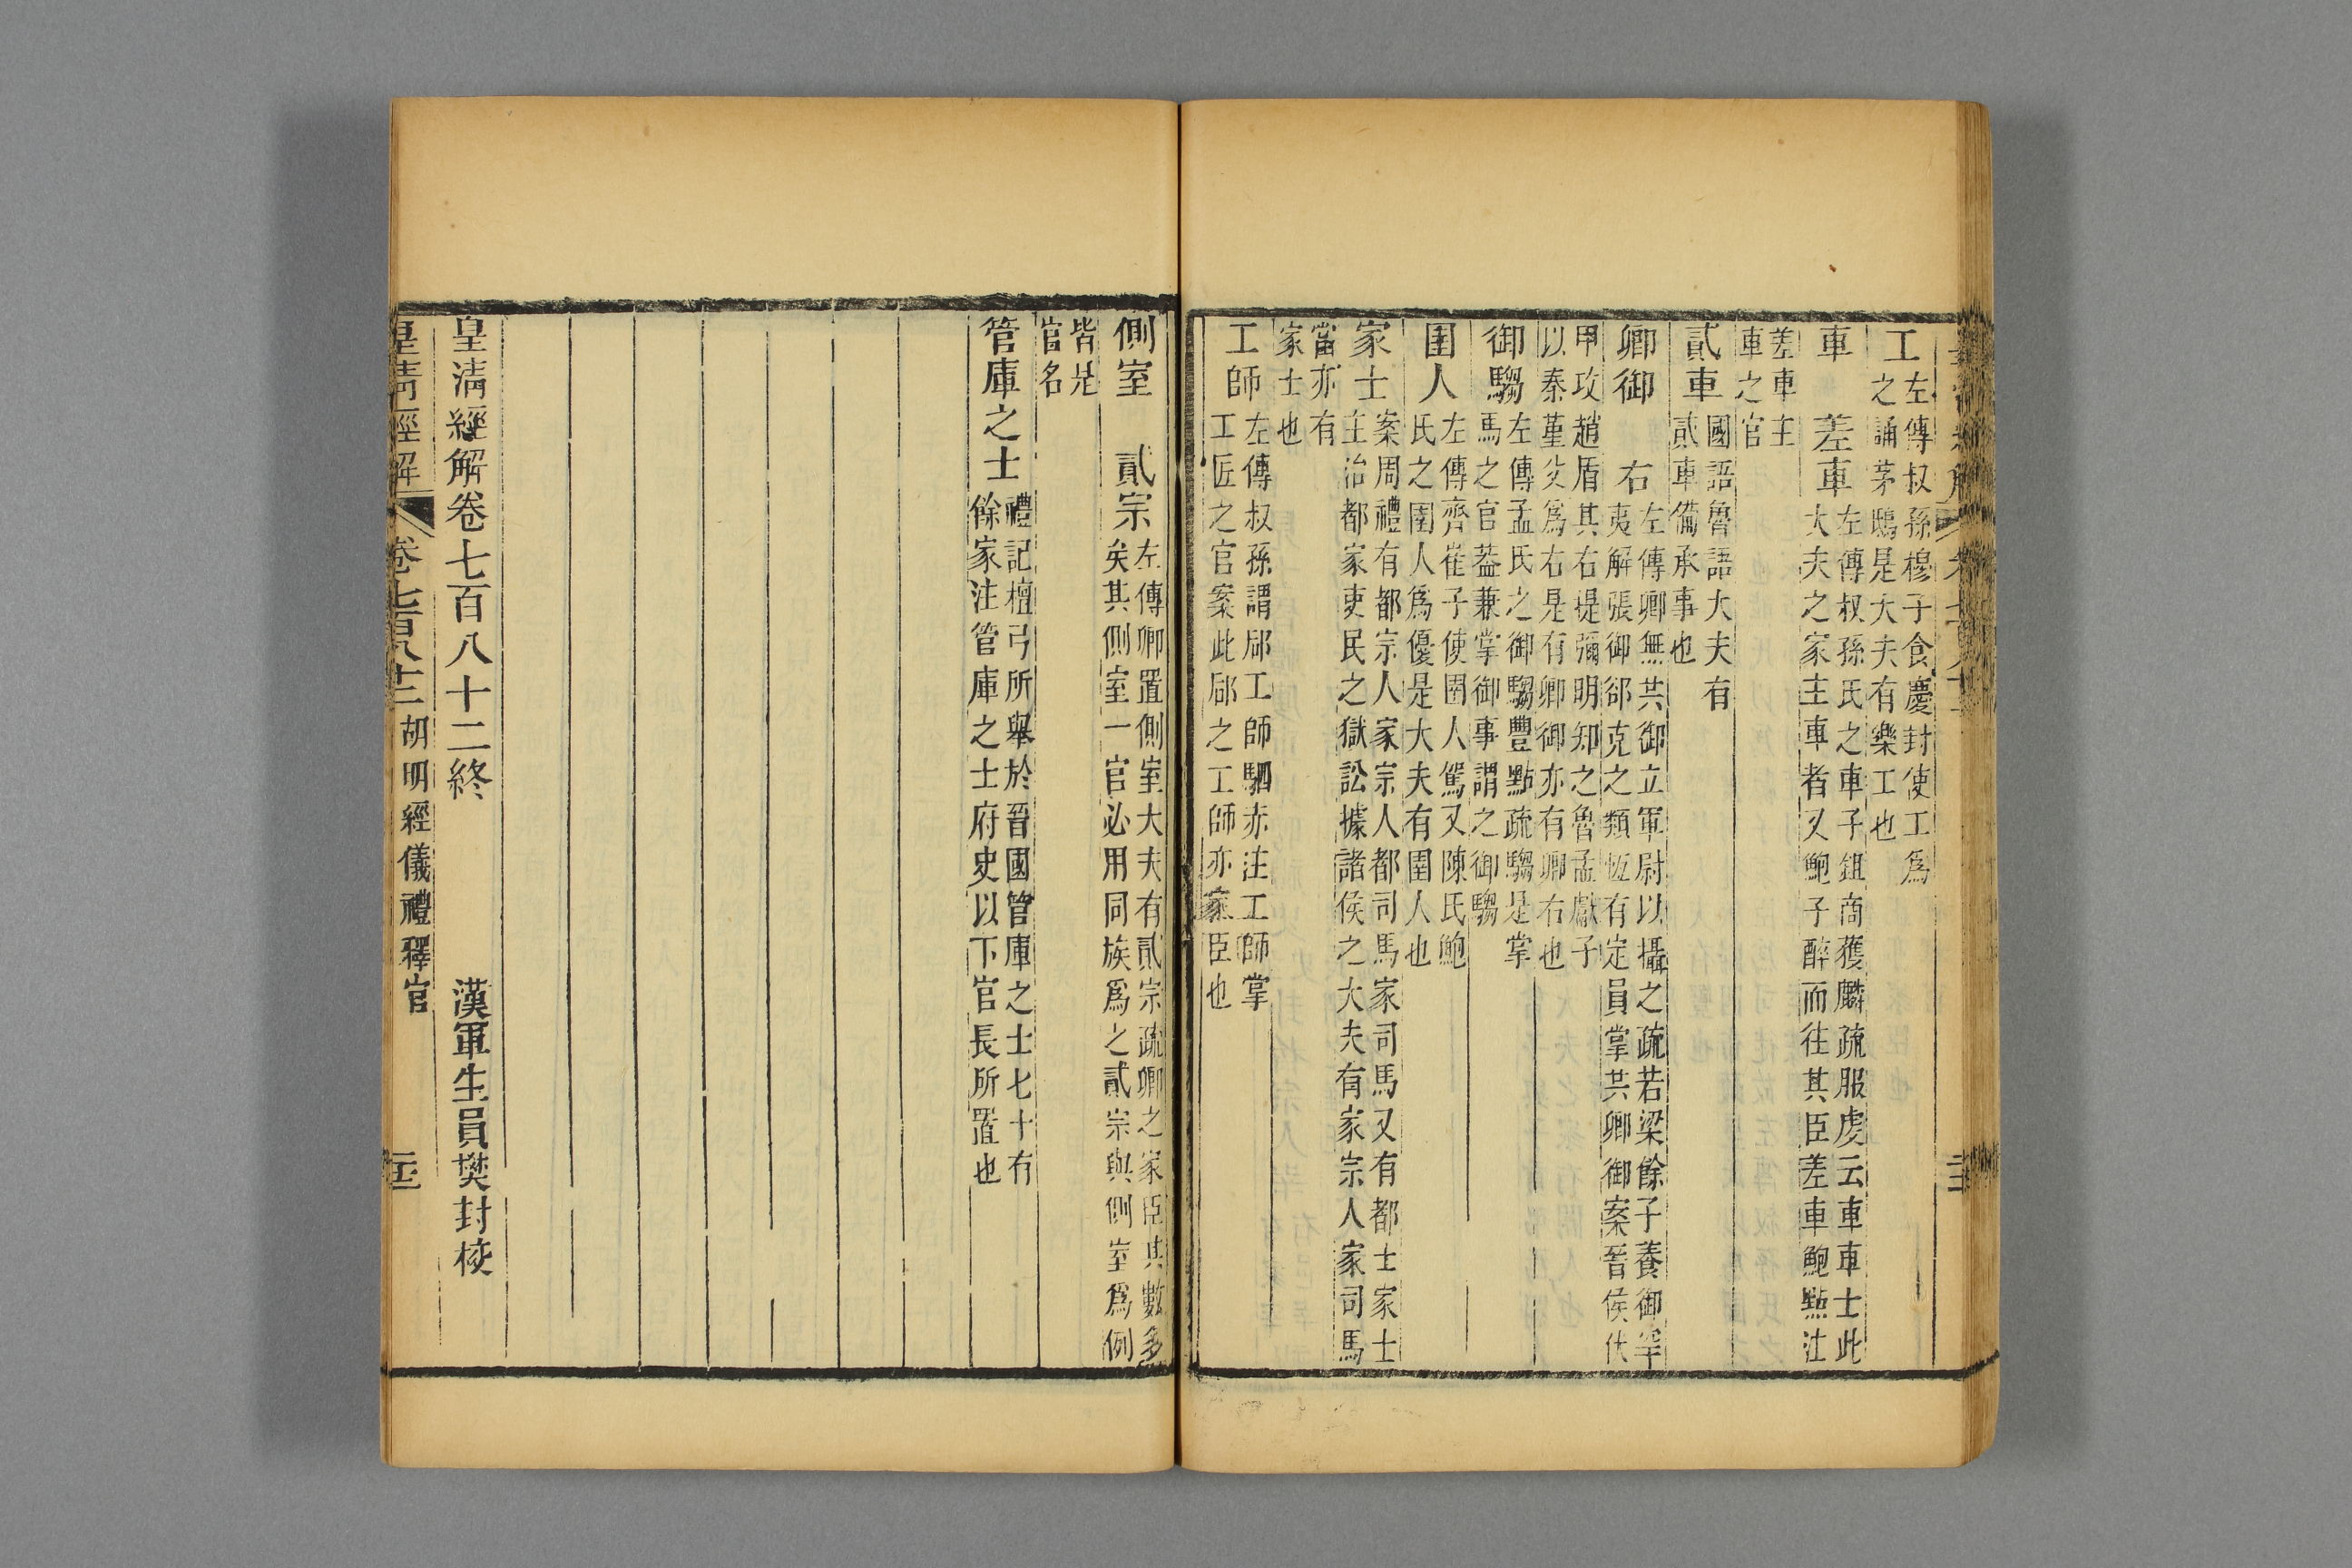 工左傳叔孫穆子食慶封使工爲
之誦茅鴟是大夫有樂工也
車　差車左傳叔孫氏之車子鉏商獲麟疏服虔云車車士此
大夫之家主車者又鮑子醉而往其臣差車鮑點注
差車主
車之官
貳車國語魯語大夫有
貳車備承事也
卿御　右左傳卿無共御立軍尉以攝之疏若梁餘子養御罕
夷解張御郤克之類恆有定員掌共卿御案晉侯伏
甲攻趙盾其右提彌明知之魯孟獻子
以秦堇父爲右是有卿御亦有卿右也
御騶左傳孟氏之御騶豐點疏騶是掌
馬之官葢兼掌御事謂之御騶
圉人左傳齊崔子使圉人駕又陳氏鮑
氏之圉人爲優是大夫有圉人也
家士案周禮有都宗人家宗人都司馬家司馬又有都士家士
主治都家吏民之獄訟據諸侯之大夫有家宗人家司馬
當亦有
家士也
工師左傳叔孫謂郈工師駟赤注工師掌
工匠之官案此郈之工師亦家臣也
側室　貳宗左傳卿置側室大夫有貳宗疏卿之家臣其數多
矣其側室一官必用同族爲之貳宗與側室爲例
皆是
官名
管庫之士禮記檀弓所舉於晉國管庫之士七十有
餘家注管庫之士府史以下官長所置也
皇淸經解卷七百八十二終　漢軍生員樊封校
皇淸經解　卷七百八十二　胡明經儀禮釋官